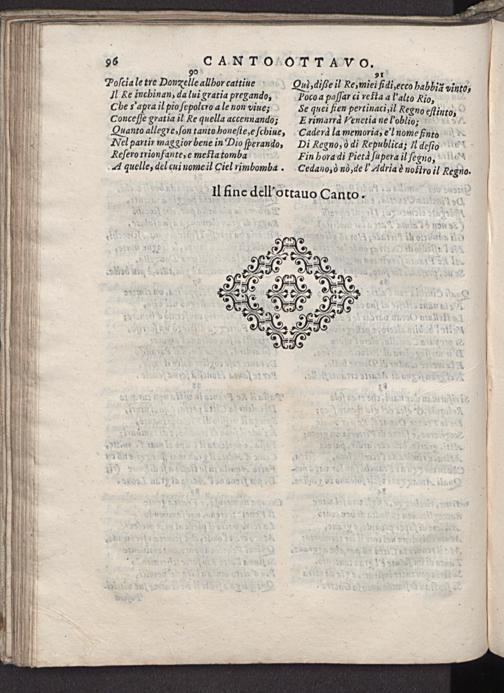 96 CANTO OTTAVO.
90
Poscia le tre Donzelle allhor cattiue
Il Re inchinan, da lui gratia pregando,
Che s'apra il pio sepolcro a le non viue;
Concesse gratia il Re quella accennando;
Quanto allegre, son tanto honeste, e schiue,
Nel partir maggior bene in Dio sperando,
Resero trionfante, e mesta tomba
A quelle, del cui nome il Ciel rimbomba.
91
Quì, disse il Re, miei fidi, ecco habbiã vinto,
Poco a passar ci resta a l'alto Rio,
Se quei sien pertinaci, il Regno estinto,
E rimarrà Venetia ne l'oblio;
Caderà la memoria, e'l nome finto
Di Regno, ò di Republica; Il desio
Fin hora di Pietà supera il segno,
Cedano, ò nò, de l'Adria è nostro il Regno.
Il fine dell'ottauo Canto.